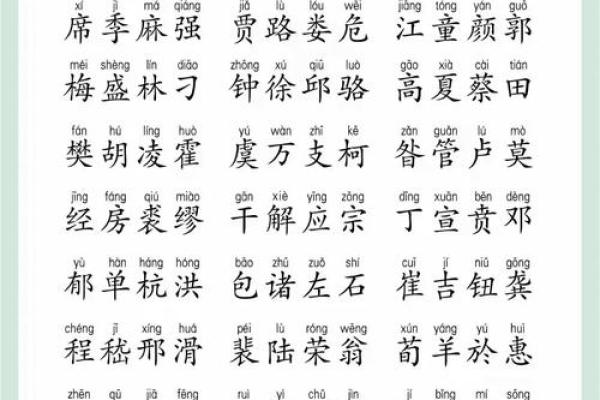 xí jì má qiáng jiǎ lù lóu wēi jiāng tóng yán guō
席季麻强 贾路娄危 江童颜郭
méi shèng lín diāo zhōng xú qiū luò gāo xià cài tián
梅盛林刁 钟徐邱骆 高夏蔡田
fán hú líng huò yú wàn zhī kē zǎn guǎn lú mò
樊胡凌霍 虞万支柯 昝管卢莫
jīng fáng qiú miào gān xiè yīng zōng dīng xuān bēn dèng
经房裘缪 干解应宗 丁宣贲邓
yù hàn háng hóng bāo zhū zuǒ shí cuī jí niǔ gōng
郁单杭洪 包诸左石 崔吉钮龚
chéng jī xíng huá péi lù róng wēng xún yáng yú huì
程嵇邢滑 裴陆荣翁 荀羊於惠
zhēn qū jiā fēng ruì yì chǔ jìn jí bǐng mí sōng